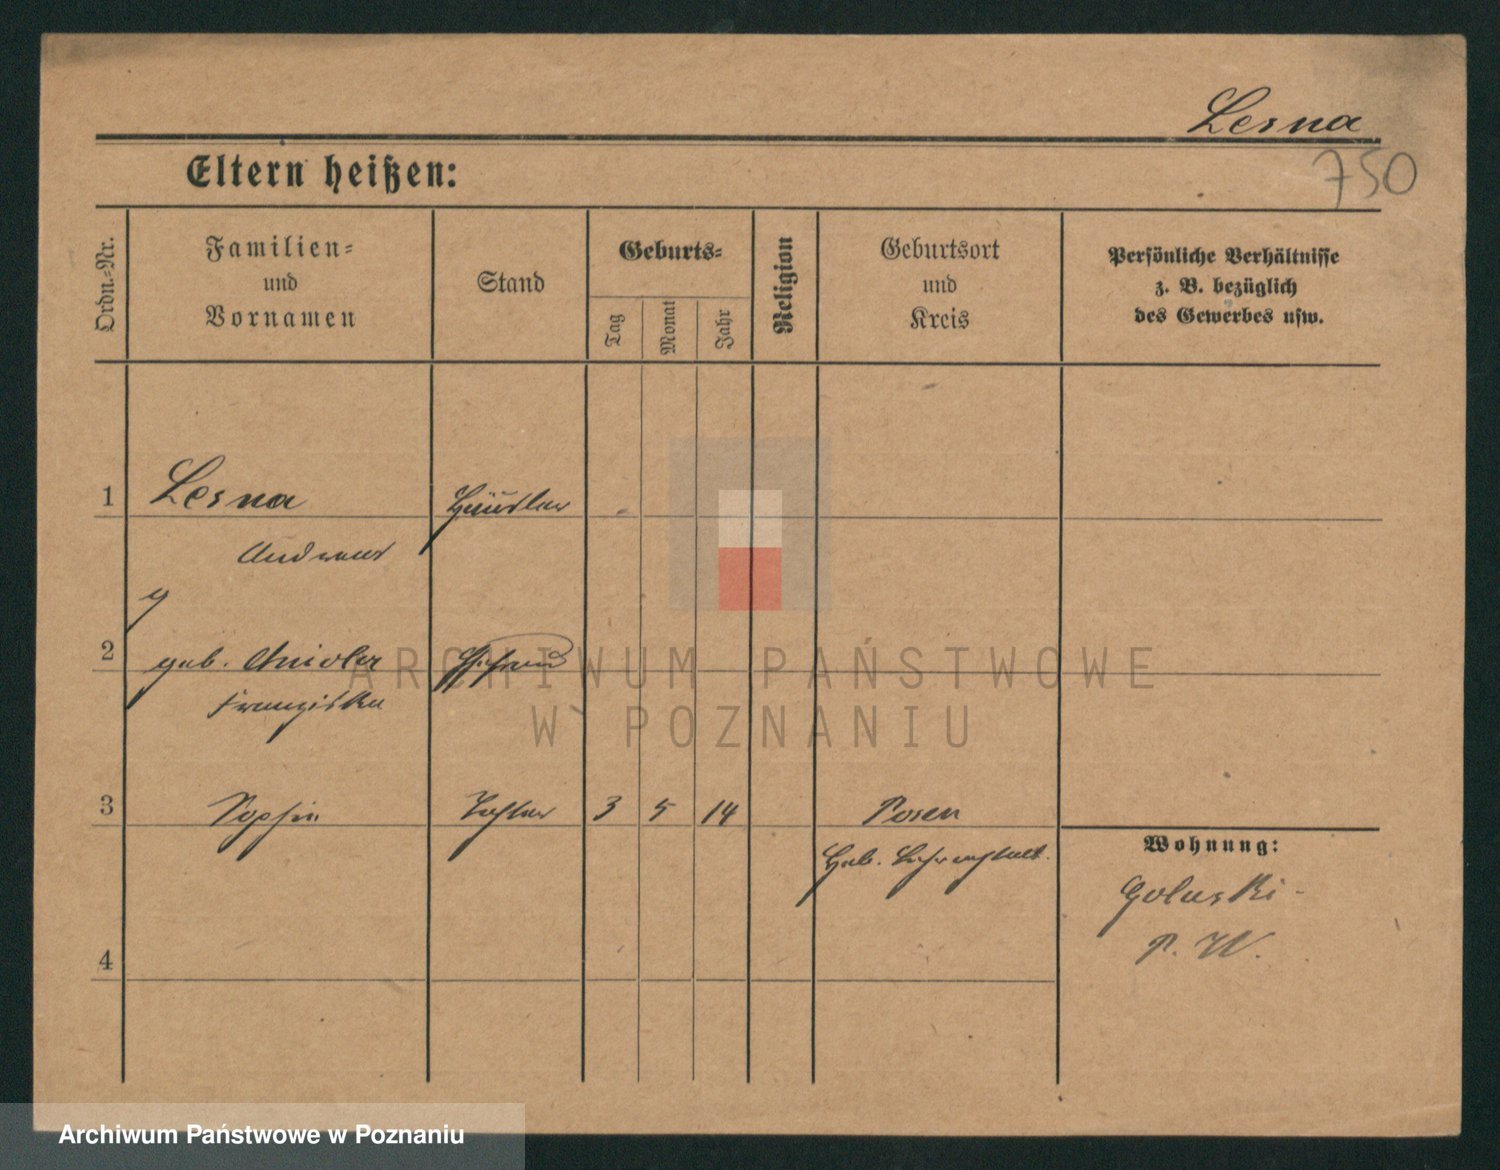 Lesna
750
Eltern heißen:
Ordn.-Nr.
Familien-
und
Vornamen
Stand
Geburts-
Tag
Monat
Jahr
Religion
Geburtsort
und
Kreis
Persönliche Verhältnisse
z. B. bezüglich
des Gewerbes usw.
1 Lesna Häusler
Andreas
2 geb. Ehefrau
Franziska
3 Sophie Tochter 3 5 14 Posen
Heb. Lehranstalt.
Wohnung:
Goluski-
P. W.
4
ARCHIWUM PAŃSTWOWE
W POZNANIU
Archiwum Państwowe w Poznaniu